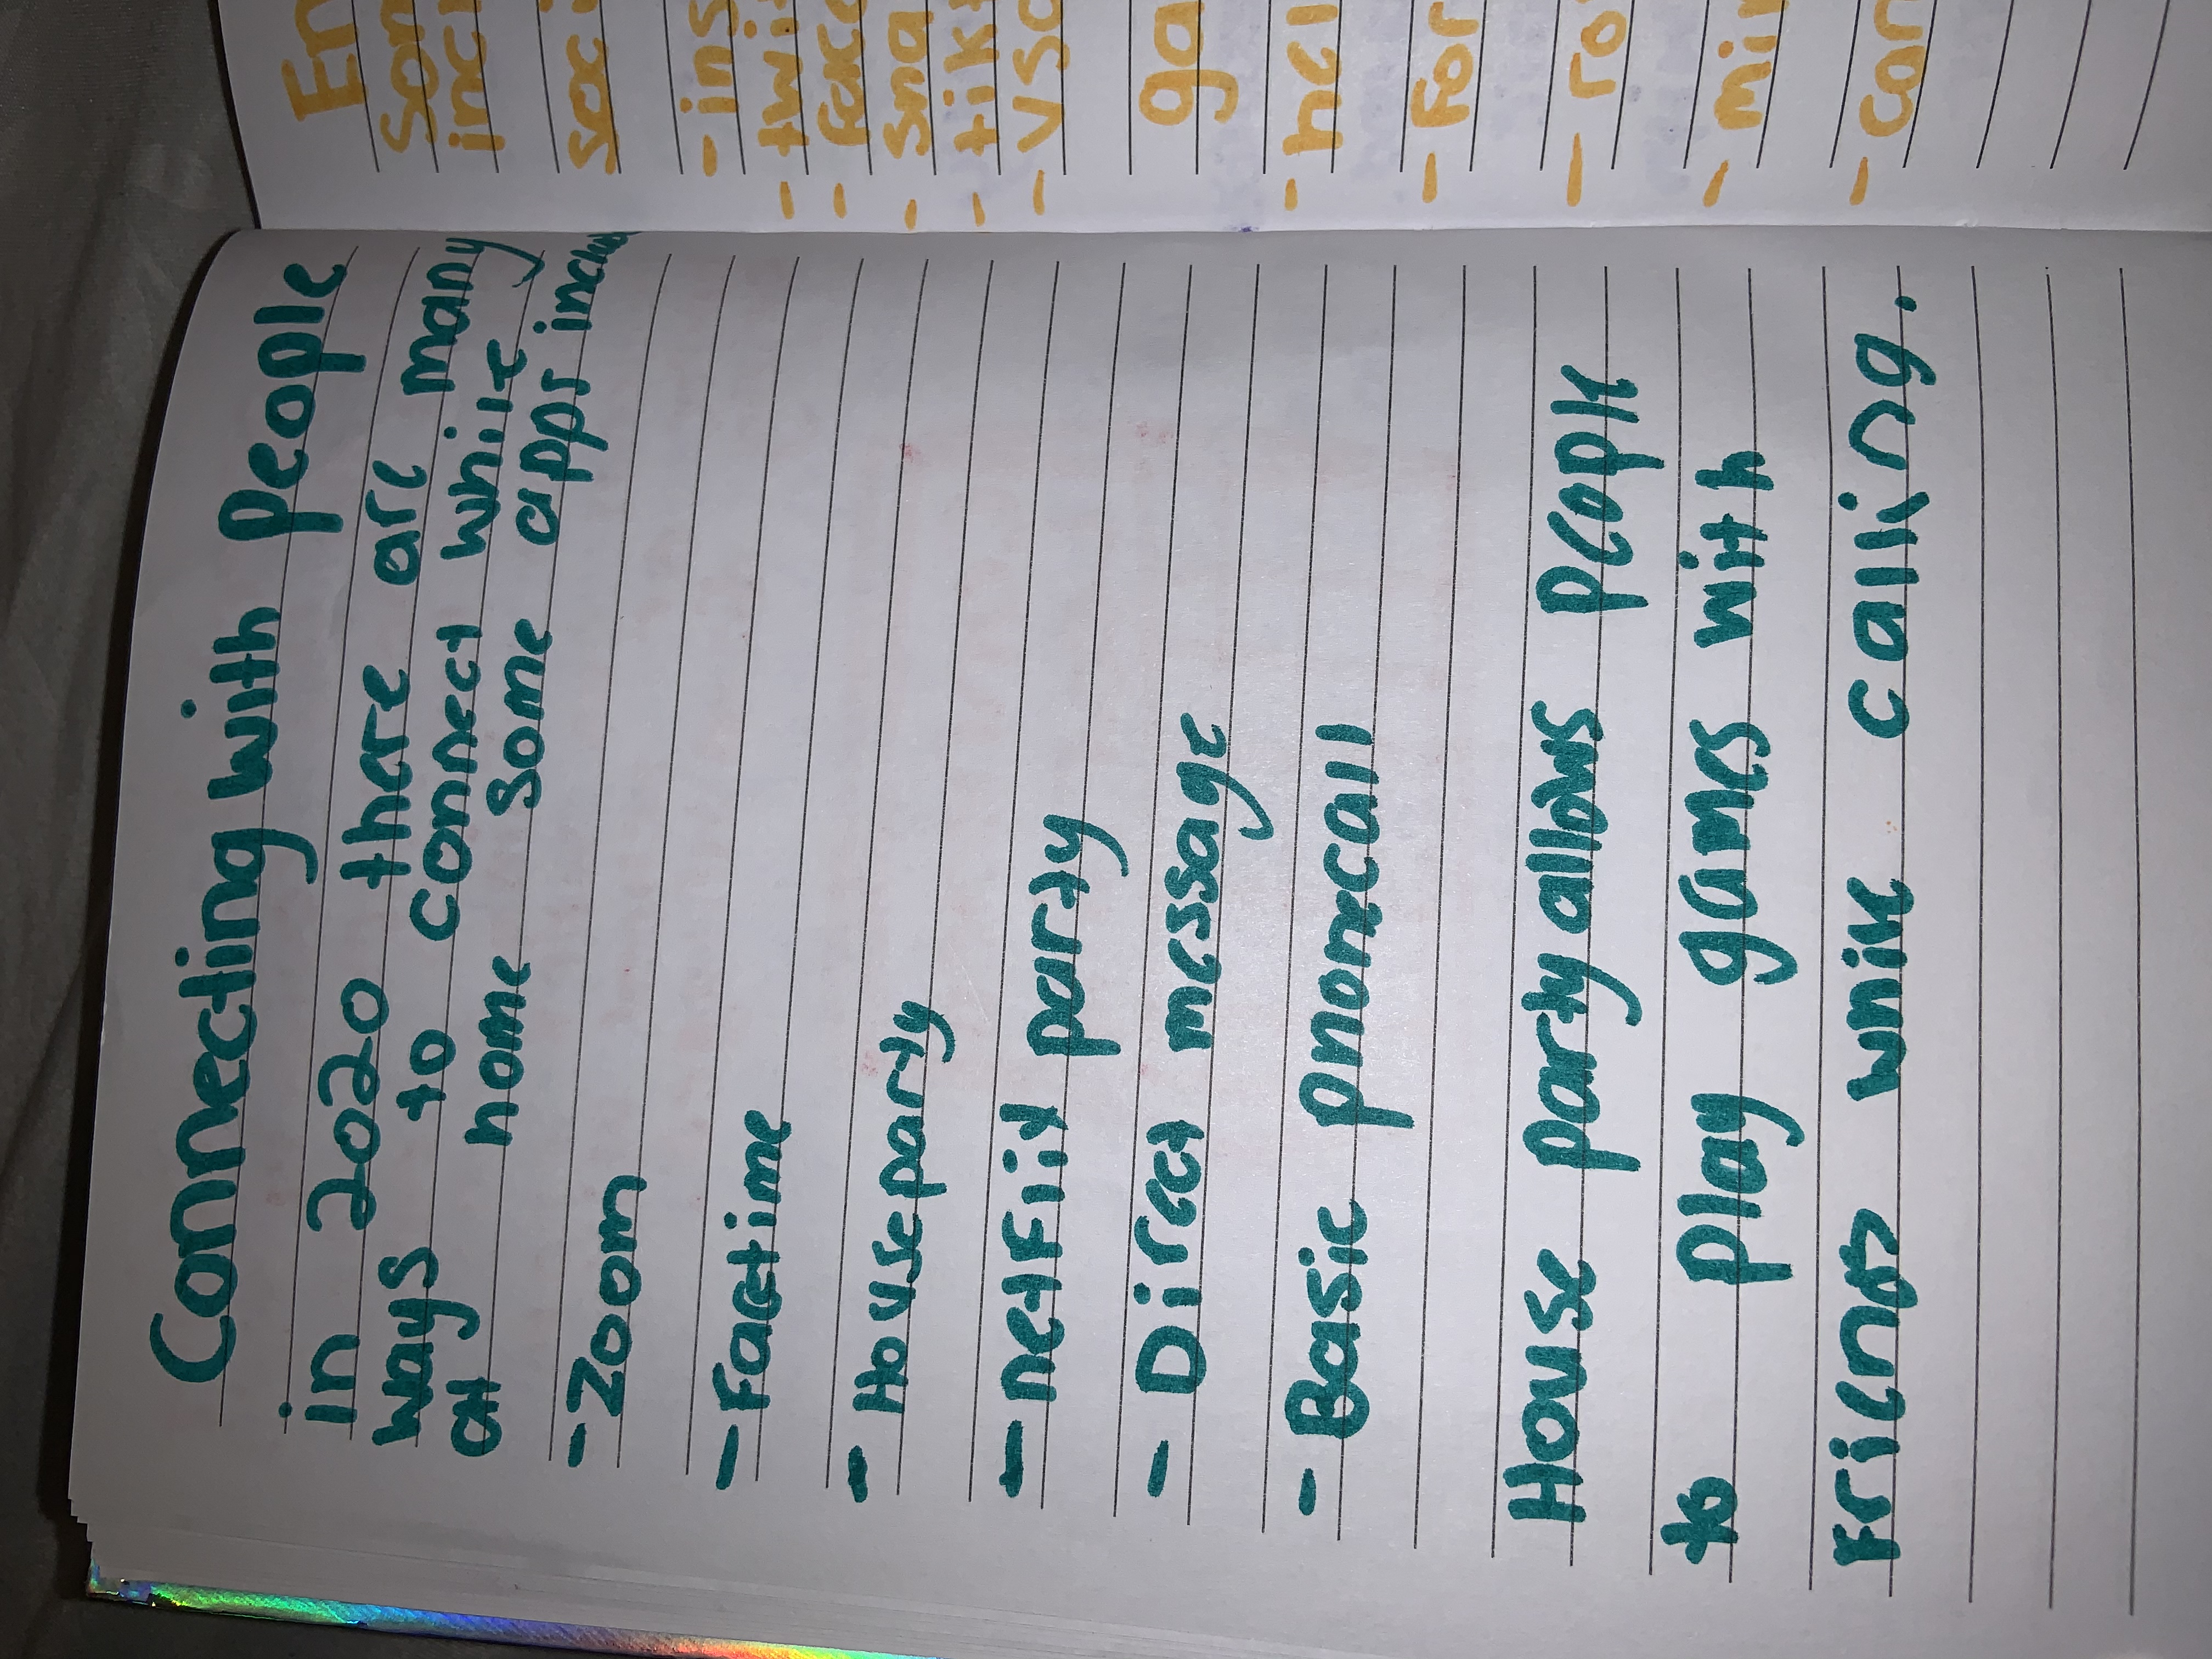 Connecting with people
in 2020 there are many
ways to connect while
at home some apps includ
- Zoom
- Factime
- Houseparty
- netflix party
- Direct message
- Basic phonecall
House party allows people
to play games with
friends while calling.
En
Som
incl
soci
- ins
- twi
- face
- sna
- tik
- vsc
ga
- hel
- for
- ro
- min
- can